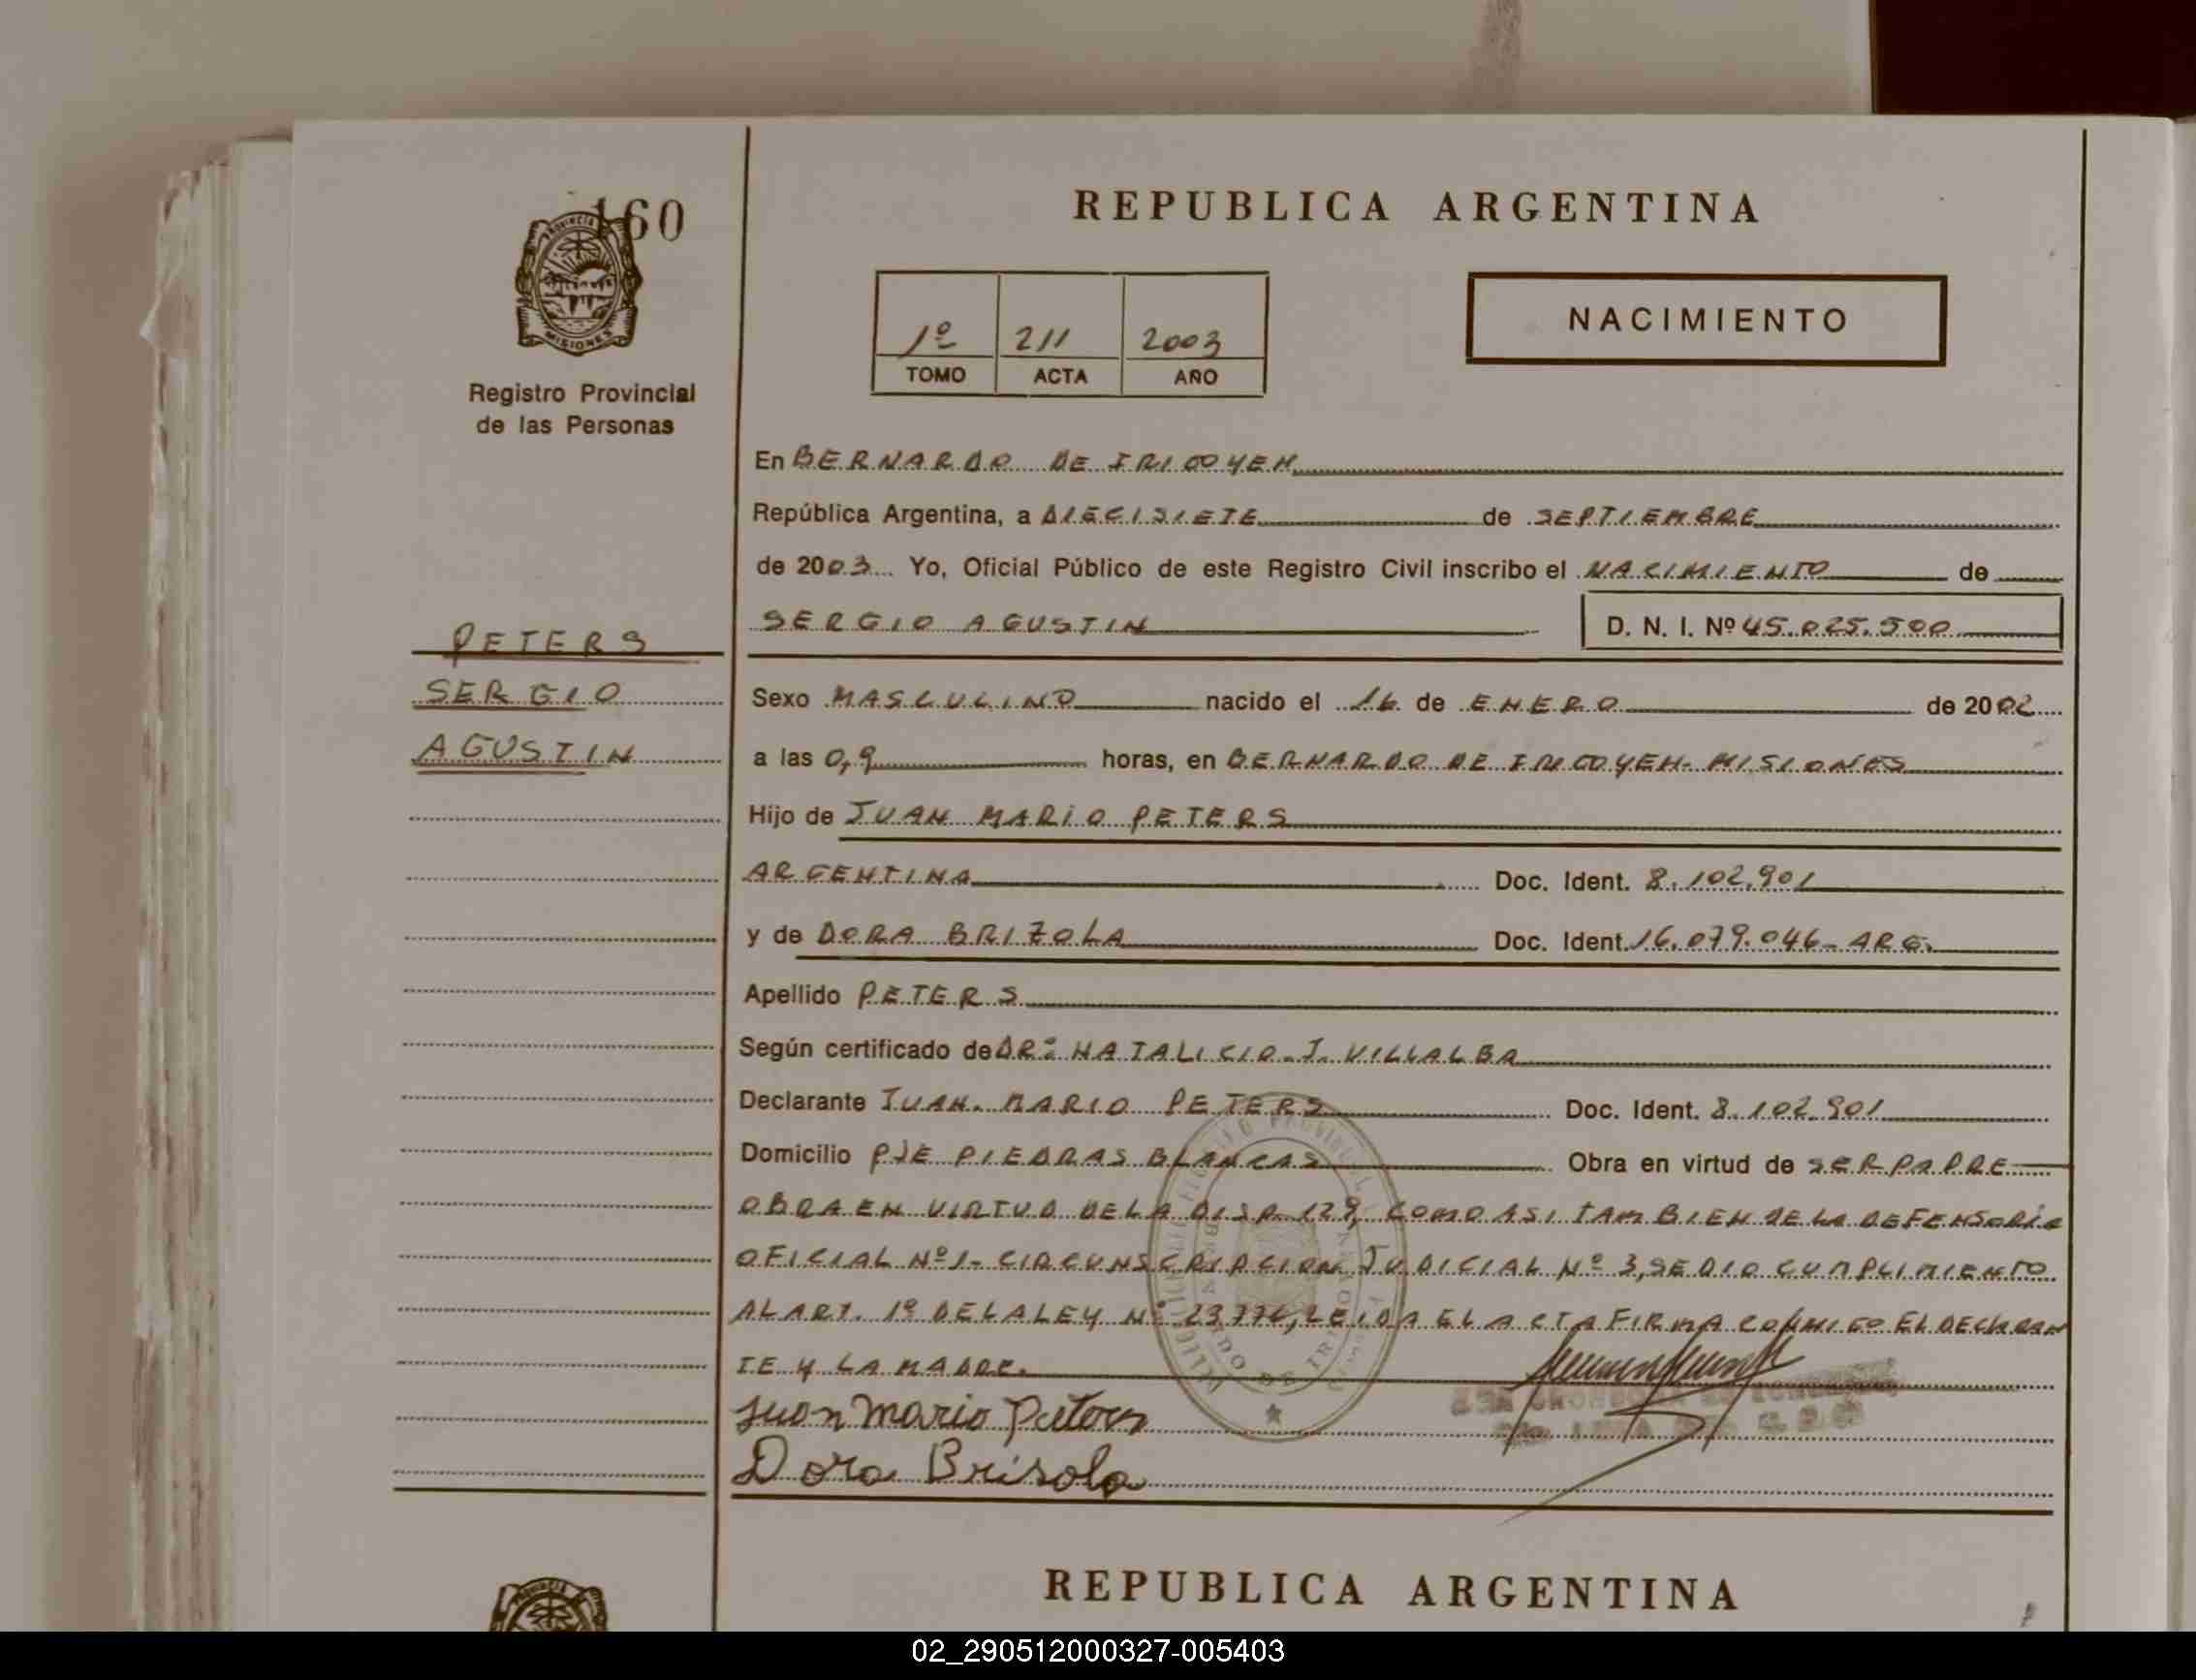 160
PROVINCIA
MISIONES
Registro Provincial
de las Personas
PETERS
SERGIO
AGUSTIN
REPUBLICA ARGENTINA
1º 211 2003
TOMO ACTA AÑO
NACIMIENTO
En BERNARDO DE IRIGOYEN
República Argentina, a DIECISIETE de SEPTIEMBRE
de 2003 Yo, Oficial Público de este Registro Civil inscribo el NACIMIENTO de
SERGIO AGUSTIN D. N. I. Nº 45.025.500
Sexo MASCULINO nacido el 16 de ENERO de 2002
a las 0,9 horas, en BERNARDO DE IRIGOYEN- MISIONES
Hijo de JUAN MARIO PETERS
ARGENTINA Doc. Ident. 8.102.901
y de DORA BRIZOLA Doc. Ident. 16.079.046- ARG.
Apellido PETERS
Según certificado de DRº NATALICIO. J. VILLALBA
Declarante JUAN. MARIO PETERS Doc. Ident. 8.102.901
Domicilio PJE PIEDRAS BLANCAS Obra en virtud de SER PADRE
OBRA EN VIRTUD DE LA DISP. 129, COMO ASI TAMBIEN DE LA DEFENSORIA
OFICIAL Nº1- CIRCUNSCRIPCION JUDICIAL Nº 3, SE DIO CUMPLIMIENTO
AL ART. 1º DE LA LEY Nº 23776, LEIDA EL ACTA FIRMA CONMIGO EL DECLARAN
TE Y LA MADRE.
Juan Mario Peters
Dora Brisola
REPUBLICA ARGENTINA
PROVINCIA
02_290512000327-005403